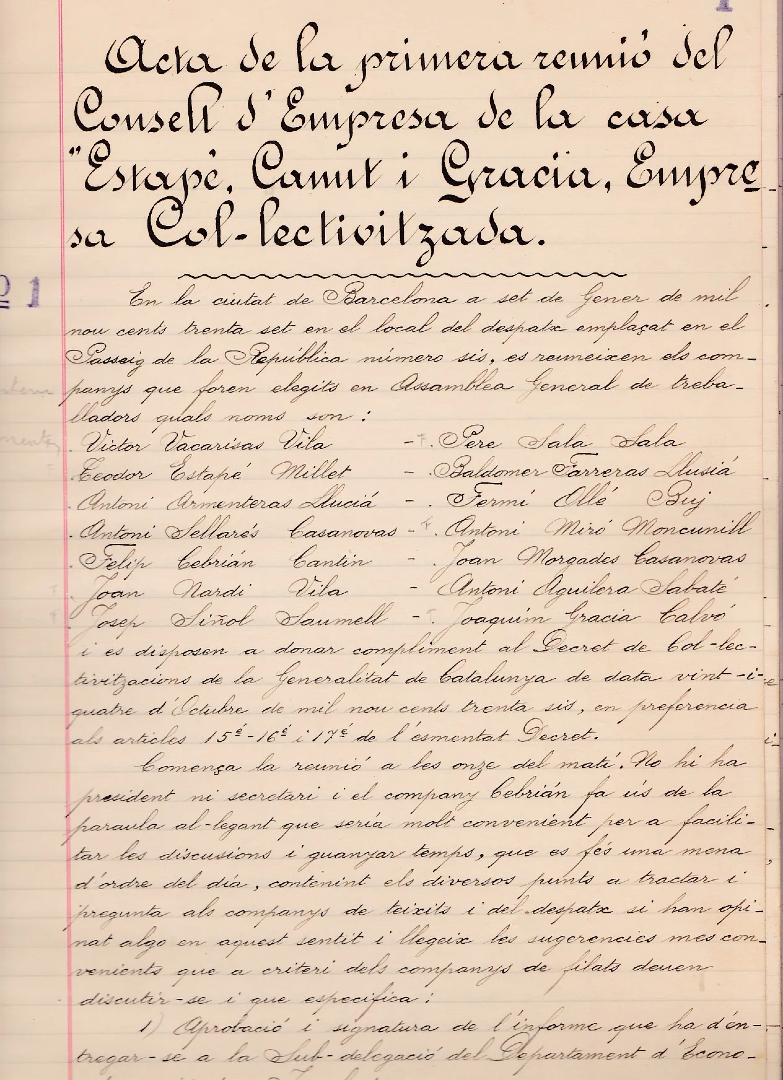 1
Acta de la primera reunió del
Consell d'Empresa de la casa
"Estapé, Canut i Gracia, Empre
sa Col-lectivitzada.
º 1
En la ciutat de Barcelona a set de Gener de mil
nou cents trenta set en el local del despatx emplaçat en el
Passeig de la República número sis, es reuneixen els com-
panys que foren elegits en Assamblea General de treba-
lladors quals noms son:
Victor Vacarisas Vila - Pere Sala Sala
Teodor Estapé Millet - Baldomer Farreras Llusiá
Antoni Armenteras Lluciá - Fermí Ollé Buj
Antoni Sellarés Casanovas - Antoni Miró Moncunill
Felip Cebrián Cantin - Joan Morgades Casanovas
Joan Nardi Vila - Antoni Aguilera Sabaté
Josep Siñol Saumell - Joaquím Gracia Calvó
i es disposen a donar compliment al Decret de Col-lec-
tivitzacions de la Generalitat de Catalunya de data vint-i-
quatre d'Octubre de mil nou cents trenta sis, en preferencia
als articles 15é-16é i 17é de l'ésmentat Decret.
Comença la reunió a les onze del matí. No hi ha
president ni secretari i el company Cebrián fa ús de la
paraula al-legant que sería molt convenient per a facili-
tar les discusions i guanyar temps, que es fés una mena
d'ordre del día, contenint els diversos punts a tractar i
pregunta als companys de teixits i del despatx si han opi-
nat algo en aquest sentit i llegeix les sugerencies mes con-
venients que a criteri dels companys de filats deuen
discutir-se i que especifica:
1) Aprobació i signatura de l'informe que ha d'en-
tregar-se a la Sub-delegació del Departament d'Econo-